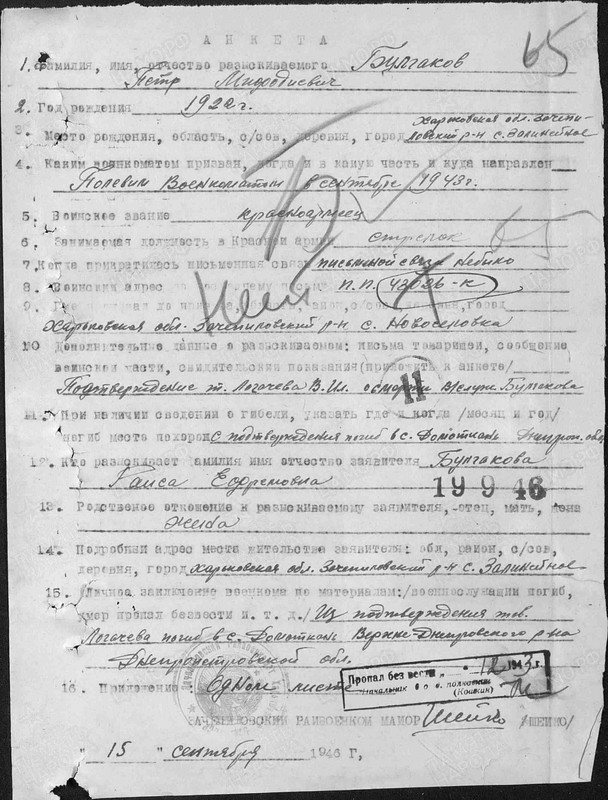 65
АНКЕТА
1. Фамилия, имя, отчество разыскиваемого Булгаков
Петр Миродиевич
2. Год рождения 1922 г.
Харьковская обл. Зачепи-
3. Место рождения, область, с/сов, деревня, город ловский р-н с. Залинейное
4. Каким военкоматом призван, когда и в какую часть и куда направлен
Полевим Военкоматом в сентябре 1943 г.
5. Воинское звание красноармеец
6. Занимаемая должность в Красной армии стрелок
65
7. Когда прекратилась письменная связь письменой связи небыло
8. Воинский адрес по последнему письму п.п. 43026-к
9. Где проживал до призыва, область, с/сов, деревня, город
Харьковская обл. Зачепиловский р-н с. Новоселовка
10 Дополнительные данные о разыскиваемом: письма товарищей, сообщение
воинской части, свидетельские показания (приложить к анкете/
Подтверждение т. Логачева В.И. о смерти Булгакова
11
11. При наличии сведений о гибели, указать где и когда /месяц и год/
погиб место похорон С подтверждения погиб в с. Домоткань Днепроп. обл
12. Кто разыскивает фамилия имя отчество заявителя Булгакова
Раиса Ефремовна
19 9 46
13. Родственое отношение к разыскиваемому заявителя, отец, мать, жена
жена
14. Подробный адрес места жительства заявителя: обл, район, с/сов,
деревня, город Харьковская обл. Зачепиловский р-н с. Залинейное
15. Личное заключение военкома по материалам:/военнослущий погиб,
умер пропал безвести и. т. д./ Из подтверждения тов.
Логачева погиб в с. Домоткань Верхне-Днепровского р-на
Днепропетровской обл.
Пропал без вести " " 12 1943 г.
16. Приложение Едном листе
Начальник 2 о. в. полковник
(Коавкин)
ЗАЧЕПИЛОВСКИЙ РАЙВОЕНКОМ МАЙОР Шейко /ШЕЙКО/
" 15 " сентября 1946 г,